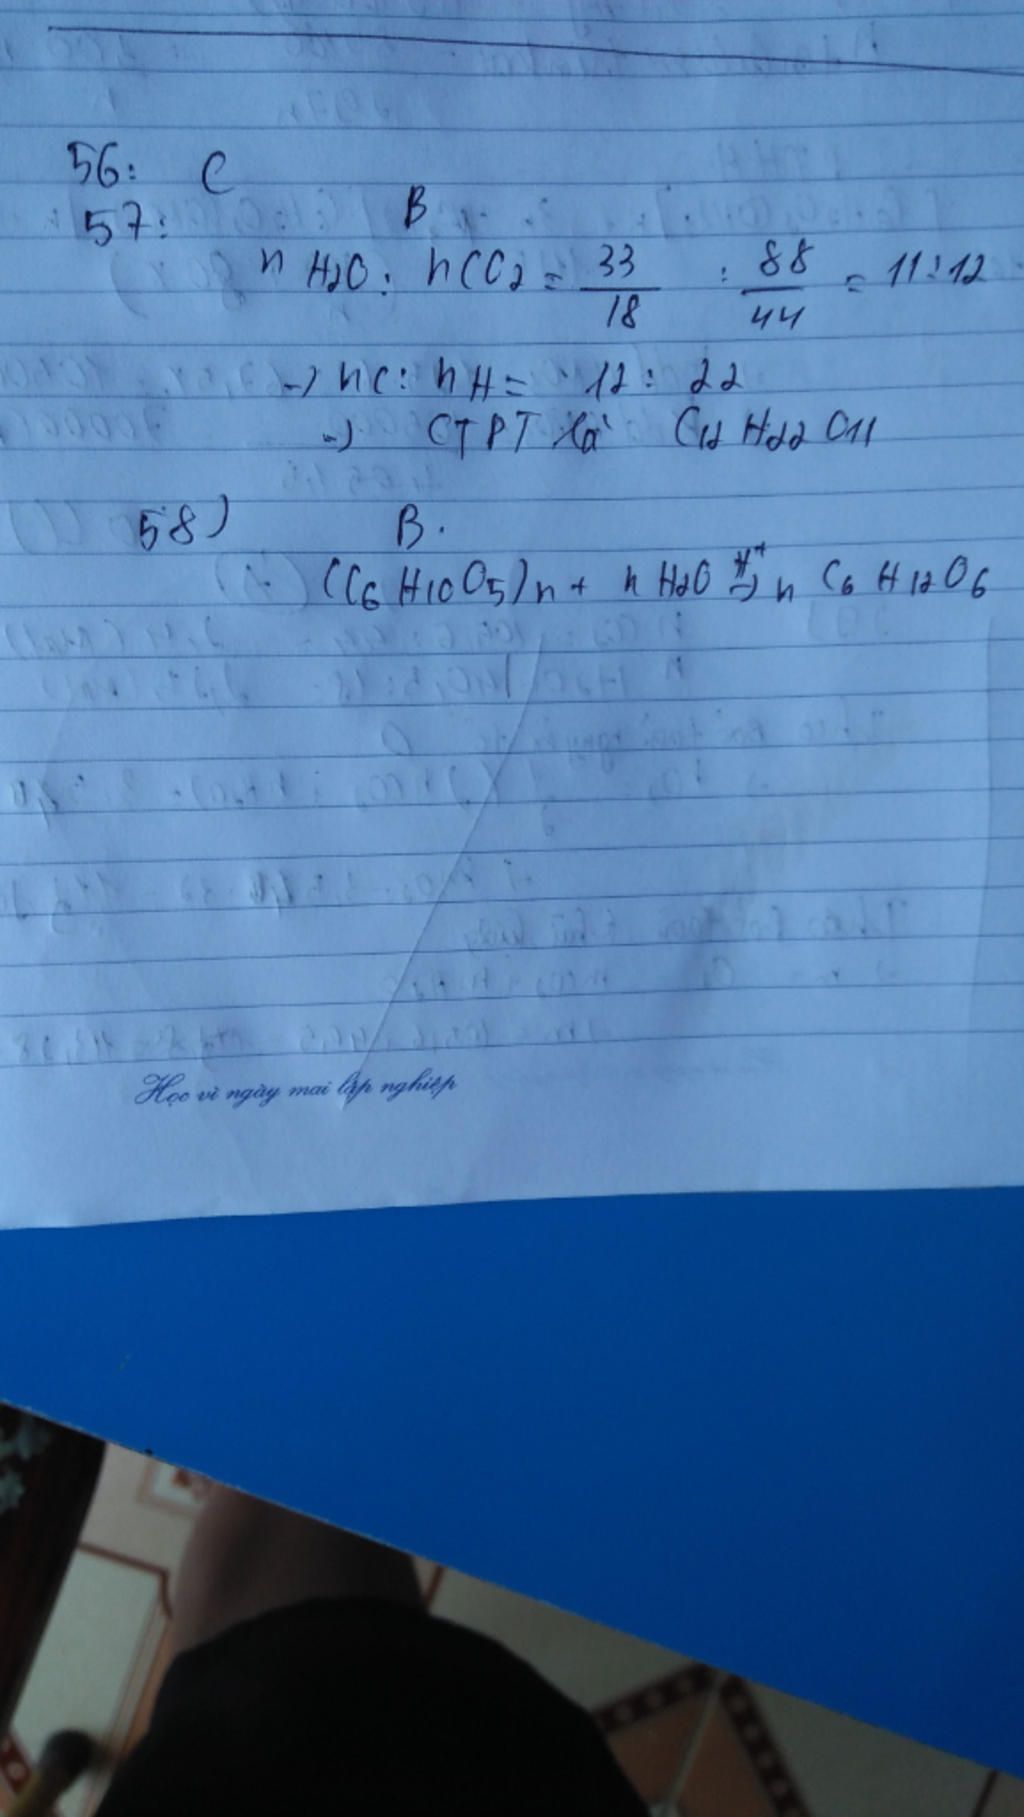 56: C
57: B
n H2O : n CO2 = 33/18 : 88/44 = 11:12
-> nC : nH = 12 : 22
-> CTPT là C12 H22 O11
58) B.
(C6 H10 O5)n + n H2O H+-> n C6 H12 O6
Học vì ngày mai lập nghiệp